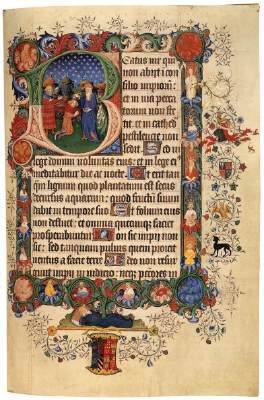 Beatus vir qui
non abiit i con
silio impiorū:
et in via pecca
torum non ste
tit. et in cathed
pestilencie non
sedit. Sed in
lege domini voluntas eius: et in lege eius
meditabitur die ac nocte. Et erit tan
qm̄ lignum quod plantatum est secus
decursus aquarum: quod fructū suū
dabit in tempore suo. Et folium eius
non defluet: et omnia quecumqꝫ faciet
prosperabuntur. Non sic impii non
sic: sed tanquam puluis quem proicit
ventus a facie terre. Ideo non resur
gunt impii in iudicio: neqꝫ pctōres in